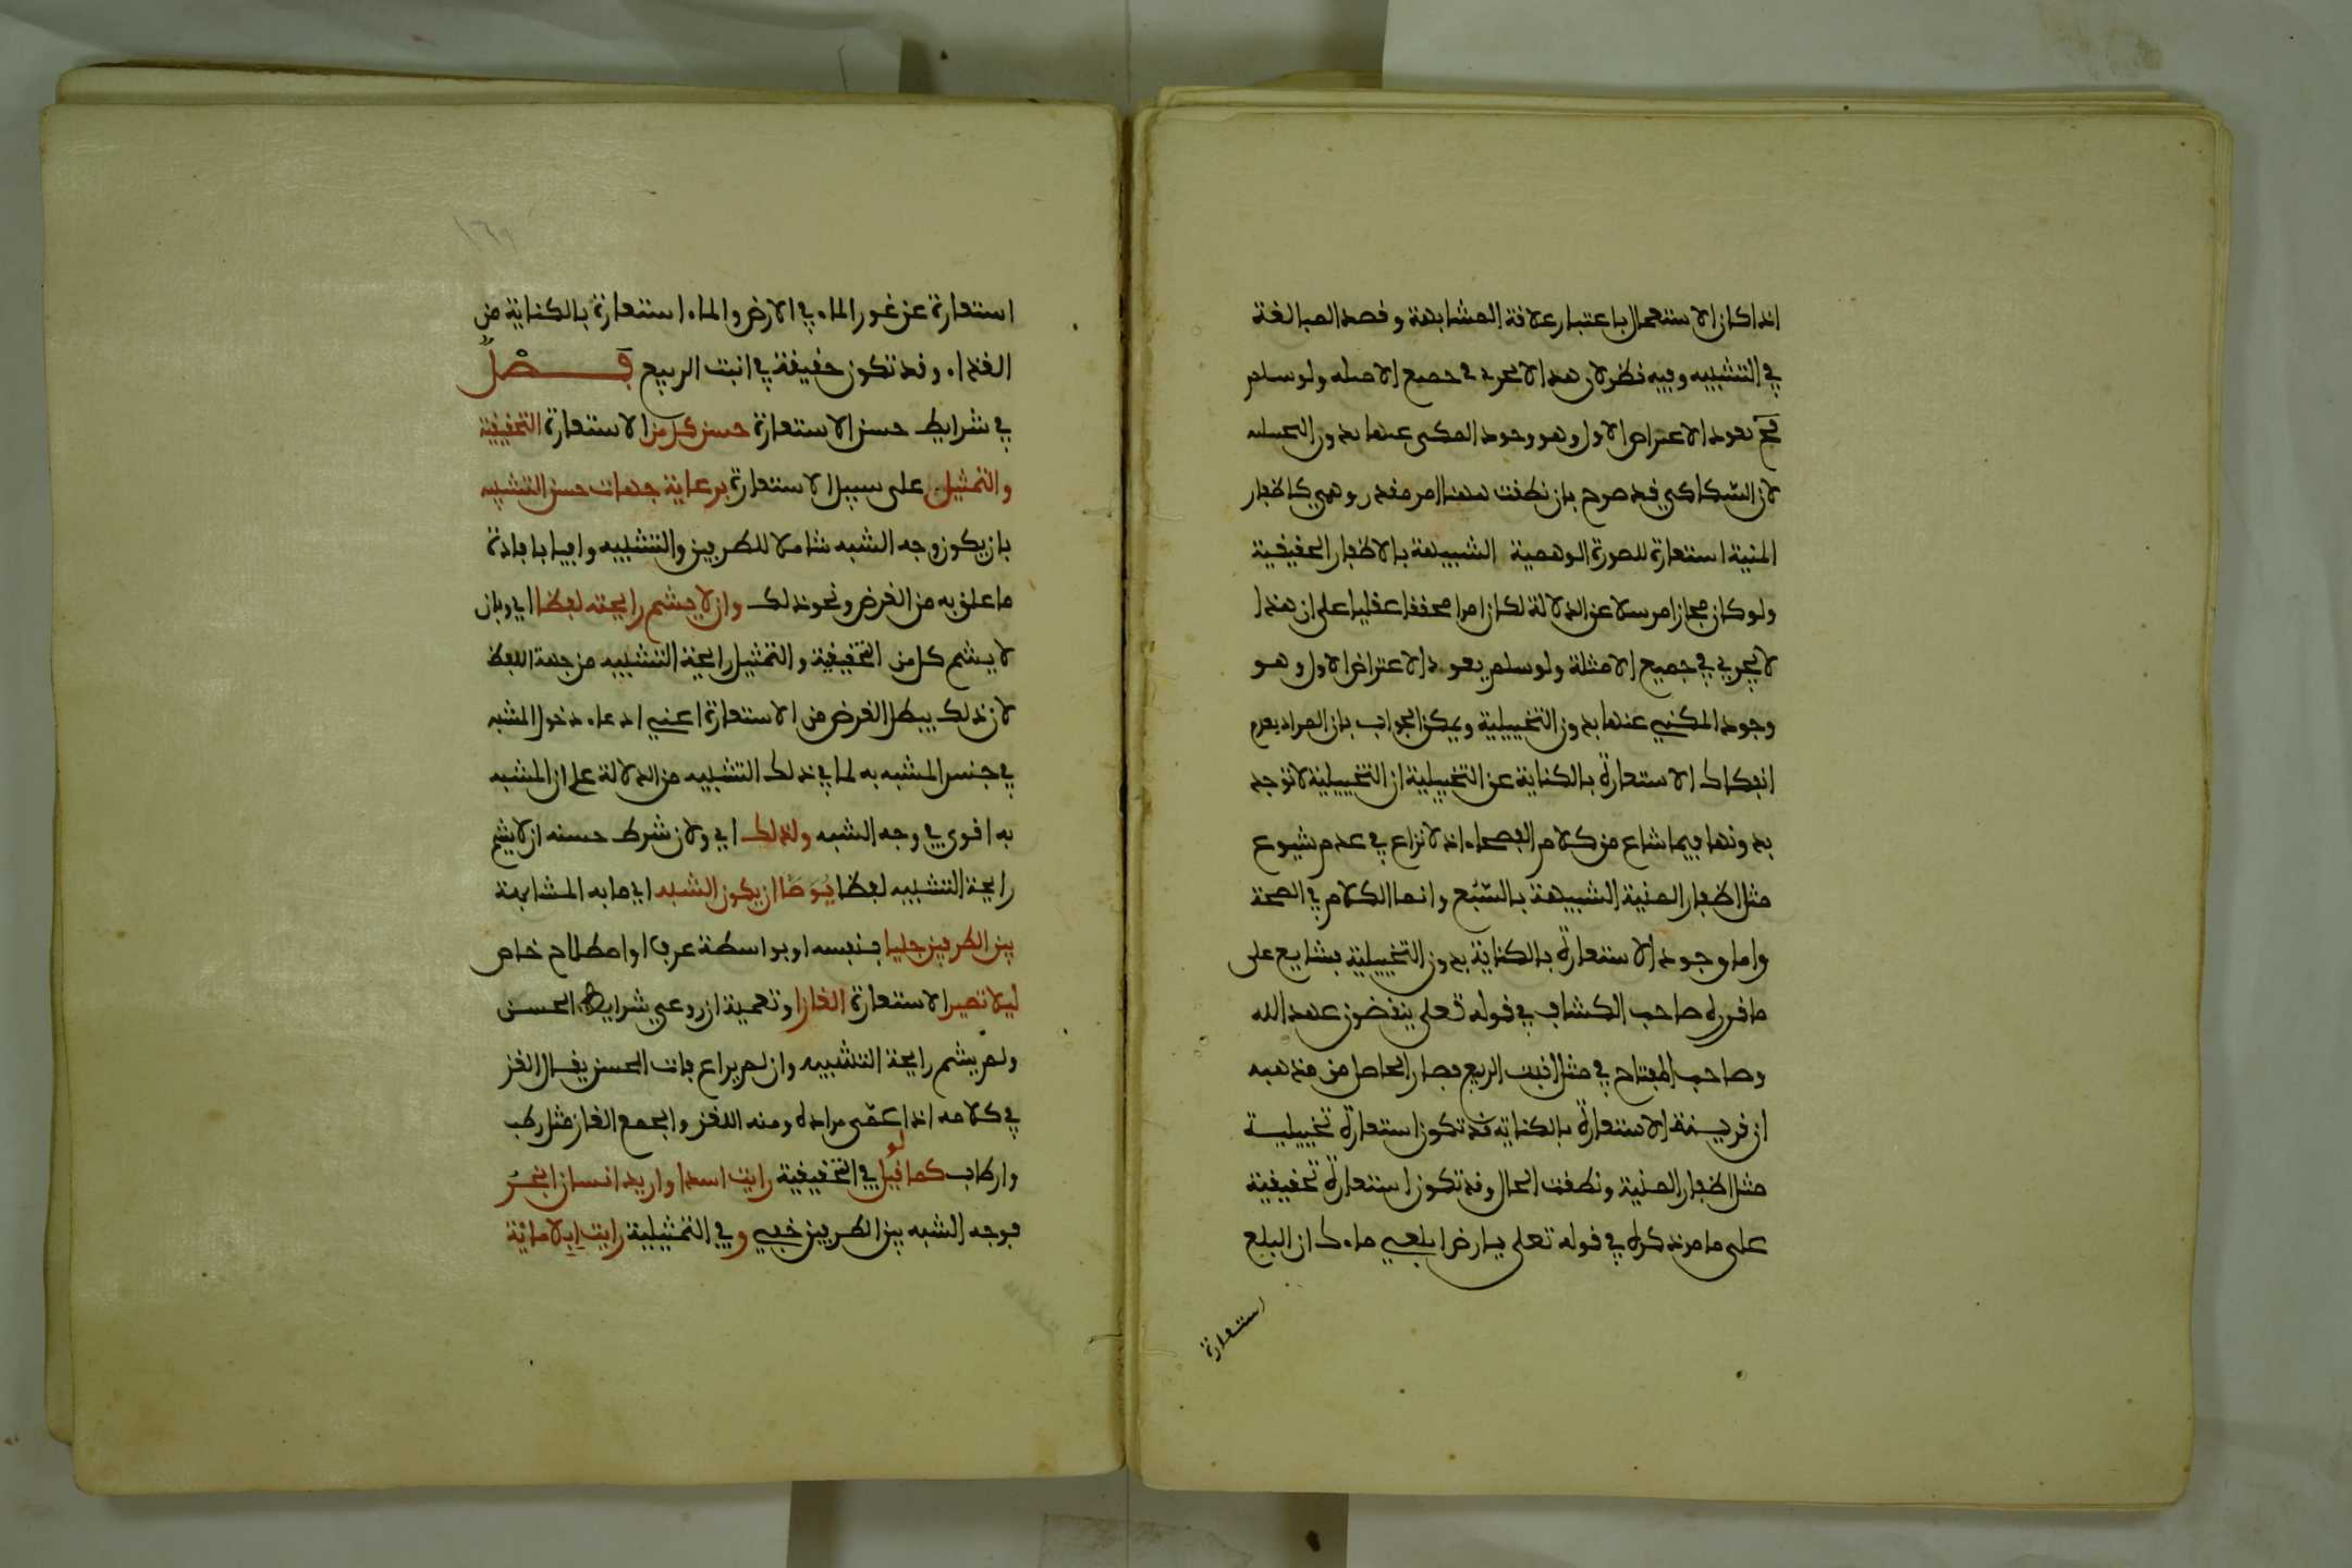 اذا كان الاستعمال باعتبار علافة المشابهة وفصد المبالغة
في التشبيه وفيه نظر لان هذا لا يجري في جميع الامثلة ولو سلم
فح يعود الاعتراض الاول وهو وجود المكنى عنها بدون التخييلية
لان السّكاكي فد صرح بان نطفت ههنا امر مفدر وهمي كاظفار
المنية استعارة للصورة الوهمية الشبيهة بالاظفار الحفيفية
ولو كان مجازا مرسلا عن الدلالة لكان امرا محففا عفليا على ان هذا
لا يجري في جميع الامثلة ولو سلم يعود الاعتراض الاول وهو
وجود المكني عنها بدون التخييلية ويمكن الجواب بان المراد بعدم
انفكاك الاستعارة بالكناية عن التخييلية ان التخييلية لا توجد
بدونها فيما شاع من كلام الفصحاء اذ لا نزاع في عدم شيوع
مثل اظفار المنية الشبيهة بالسّبُع وانما الكلام في الصحة
واما وجود الاستعارة بالكناية بدون التخييلية فشايع على
ما فرره صاحب الكشاف في فوله تعلى ينفضون عهد الله
وصاحب المفتاح في مثل انبت الربيع فصار الحاصل من مذهبه
ان فرينة الاستعارة بالكناية فد تكون استعارة تخييلية
مثل اظفار المنية ونطفت الحال وفد تكون استعارة تحفيفية
على ما مر ذكره في فوله تعلى يارض ابلعي ماءك ان البلع
استعارة
١٦٩
استعارة عن غور الماء في الارض والماء استعارة بالكناية من
الغذاء وفد تكون حفيفة في انبت الربيع فَـصْـلٌ
في شرايط حسن الاستعارة حسن كل من الاستعارة التحفيفية
والتمثيل على سبيل الاستعارة برعاية جهات حسن التشبيه
بان يكون وجه الشبه شاملا للطرفين والتشبيه وافيا بافادة
ما علق به من الغرض ونحو ذلك وان لا يشم رايحته لفظا اي وبان
لا يشم كل من التحفيفية والتمثيل رايحة التشبيه من جهة اللفظ
لان ذلك يبطل الغرض من الاستعارة اعني ادعاء دخول المشبه
في جنس المشبه به لما في ذلك التشبيه من الدلالة على ان المشبه
به افوى في وجه الشبه ولذلك اي ولان شرط حسنه ان لا يشم
رايحة التشبيه لفظا يُوصَّا ان يكون الشبه اي ما به المشابهة
بين الطرفين جليا بنفسه او بواسطة عرف او اصطلاح خاص
ليلا تصير الاستعارة الغازا وتعمية ان روعي شرايط الحسن
ولم يشم رايحة التشبيه وان لم يراع فات الحسن يفال الغز
في كلامه اذا عمّى مراده ومنه اللغز والجمع الغاز مثل رطب
وارطاب كما لو فيل في التحفيفية رايت اسدا واريد انسان ابخر
فوجه الشبه بين الطرفين خفي وفي التمثيلية رايت ابلا ماية